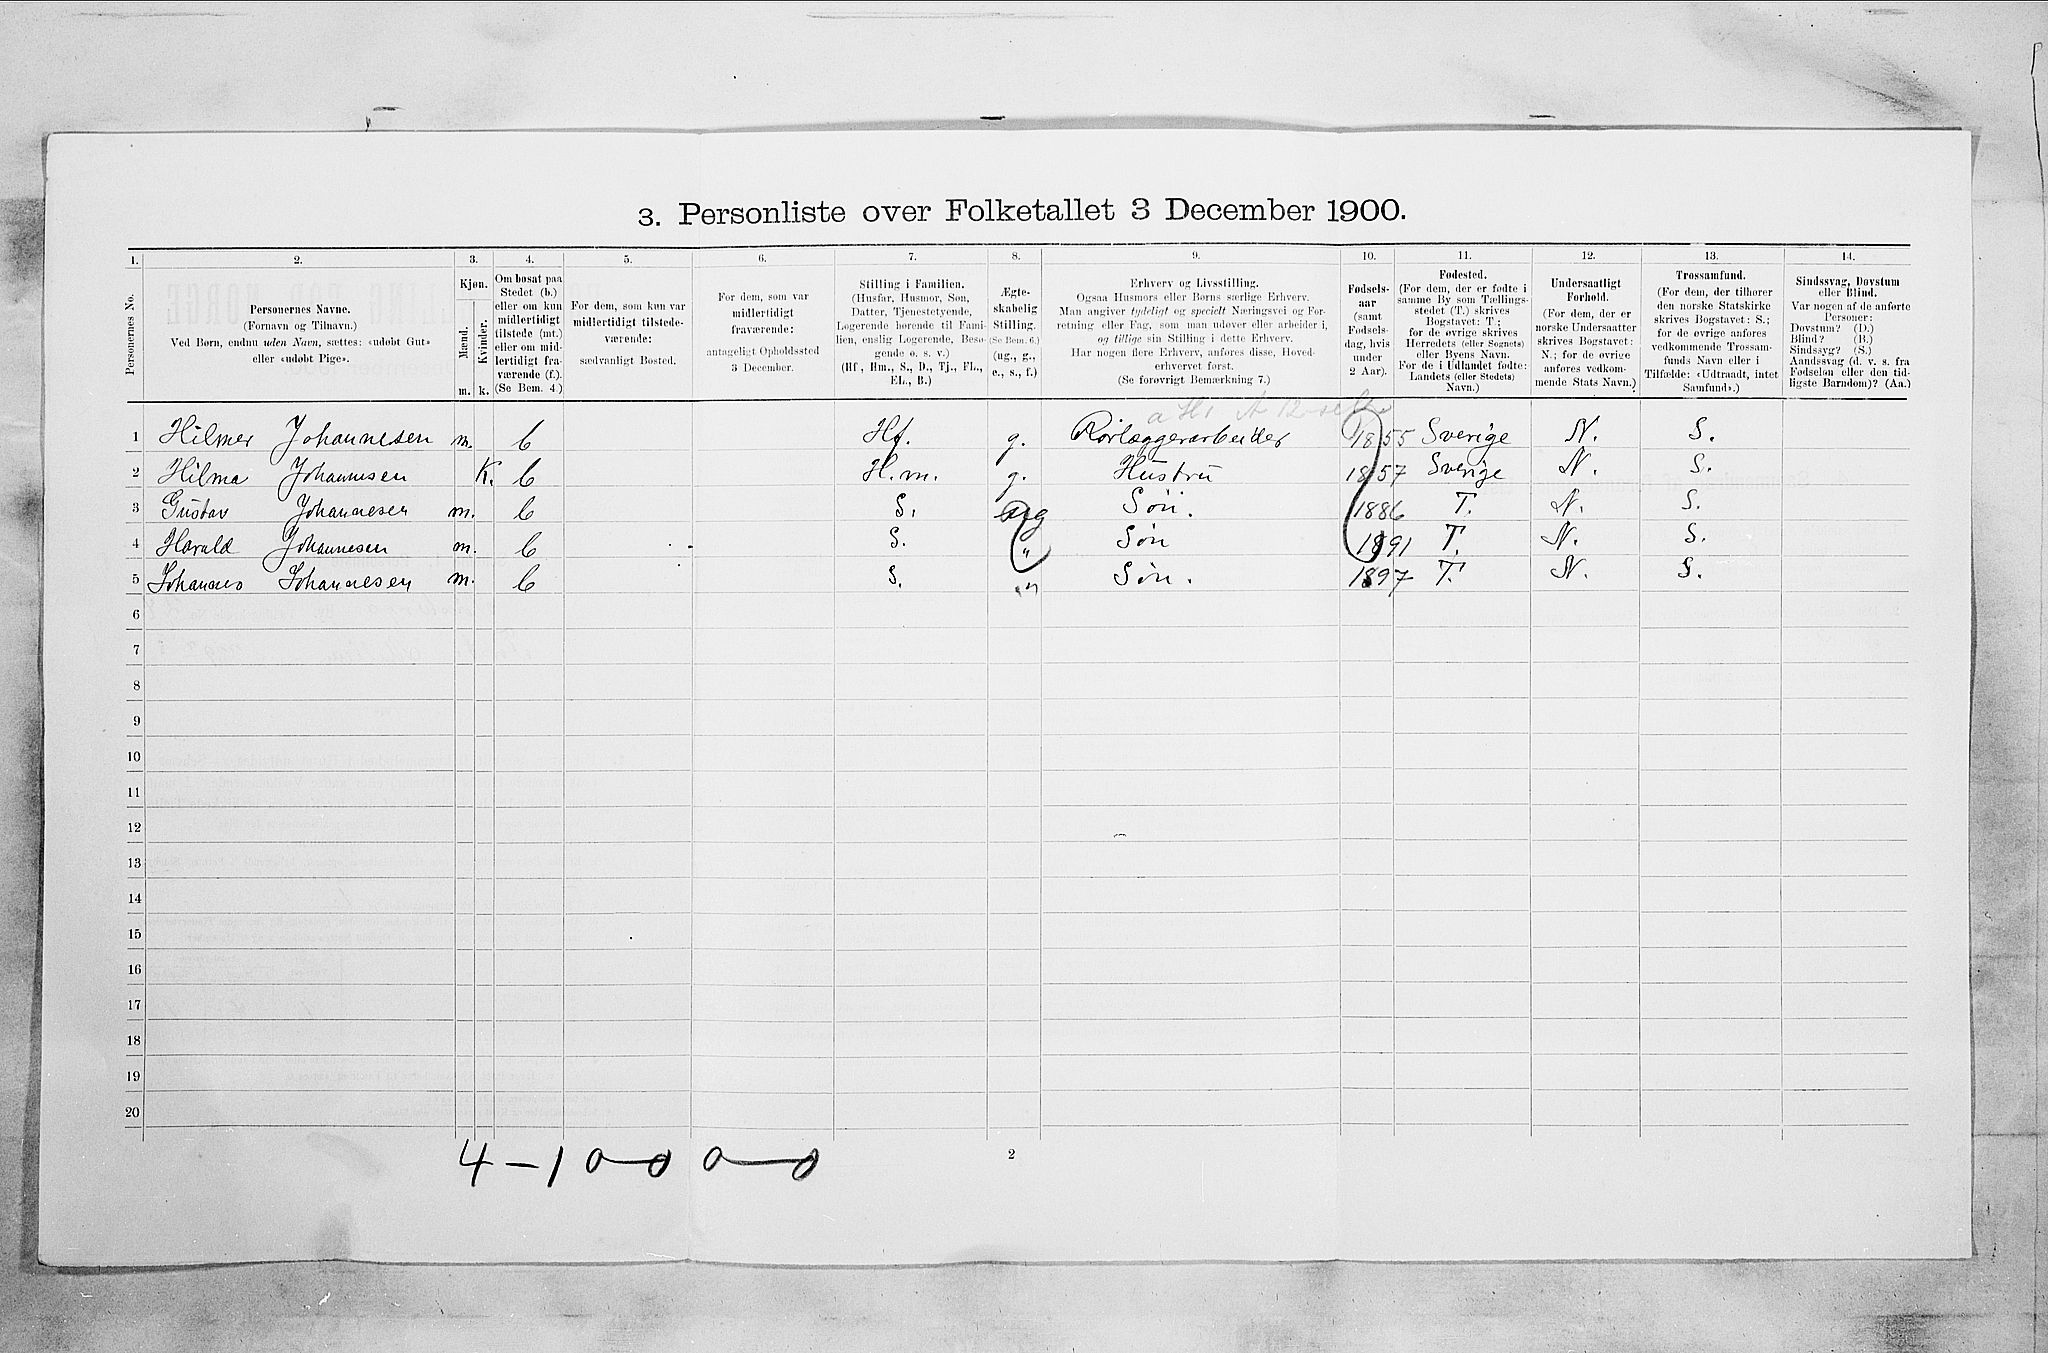 3. Personliste over Folketallet 3 December 1900.
1. 2. 3. 4. 5. 6. 7. 8. 9. 10. 11. 12. 13. 14.
Personernes No.
Personernes Navne.
(Fornavn og Tilnavn.)
Ved Børn, endnu uden Navn, sættes: «udøbt Gut»
eller «udøbt Pige».
Kjøn.
Mænd.
Kvinder.
m. k.
Om bosat paa
Stedet (b.)
eller om kun
midlertidigt
tilstede (mt.)
eller om mid-
lertidigt fra-
værende (f.).
(Se Bem. 4.)
For dem, som kun var
midlertidigt tilstede-
værende:
sædvanligt Bosted.
For dem, som var
midlertidigt
fraværende:
antageligt Opholdssted
3 December.
Stilling i Familien.
(Husfar, Husmor, Søn,
Datter, Tjenestetyende,
Logerende hørende til Fami-
lien, enslig Logerende, Besø-
gende o. s. v.)
(Hf., Hm., S., D., Tj., FL.,
EL., B.)
Ægte-
skabelig
Stilling.
(Se Bem. 6.)
(ug., g.,
e., s., f.)
Erhverv og Livsstilling.
Ogsaa Husmors eller Børns særlige Erhverv.
Man angiver tydeligt og specielt Næringsvei og For-
retning eller Fag, som man udøver eller arbeider i,
og tillige sin Stilling i dette Erhverv.
Har nogen flere Erhverv, anføres disse, Hoved-
erhvervet først.
(Se forøvrigt Bemærkning 7.)
Fødsels-
aar
(samt
Fødsels-
dag, hvis
under
2 Aar).
Fødested.
(For dem, der er fødte i
samme By som Tællings-
stedet (T.) skrives
Bogstavet: T.;
for de øvrige skrives
Herredets (eller Sognets)
eller Byens Navn.
For de i Udlandet fødte:
Landets (eller Stedets)
Navn.)
Undersaatligt
Forhold.
(For dem, der er
norske Undersaatter
skrives Bogstavet:
N.; for de øvrige
anføres vedkom-
mende Stats Navn.)
Trossamfund.
(For dem, der tilhører
den norske Statskirke
skrives Bogstavet: S.;
for de øvrige anføres
vedkommende Trossam-
funds Navn eller i
Tilfælde: «Udtraadt, intet
Samfund».)
Sindssvag, Døvstum
eller Blind.
Var nogen af de anførte
Personer:
Døvstum? (D.)
Blind? (B.)
Sindssyg? (S.)
Aandssvag (d. v. s. fra
Fødselen eller den tid-
ligste Barndom)? (Aa.)
1 Hilmer Johannesen m. b Hf. g. Rörlæggerarbeider 1855 Sverige N. S.
2 Hilma Johannesen K. b H.m. g. Hustru 1857 Sverige N. S.
3 Gustav Johannesen m. b S. ug Søn. 1886 T. N. S.
4 Harald Johannesen m. b S. " Søn 1891 T. N. S.
5 Johannes Johannesen m. b S. " Søn. 1897 T. N. S.
6
7
8
9
10
11
12
13
14
15
16
17
18
19
20
4 – 1 0 – 0 0 – 0
2